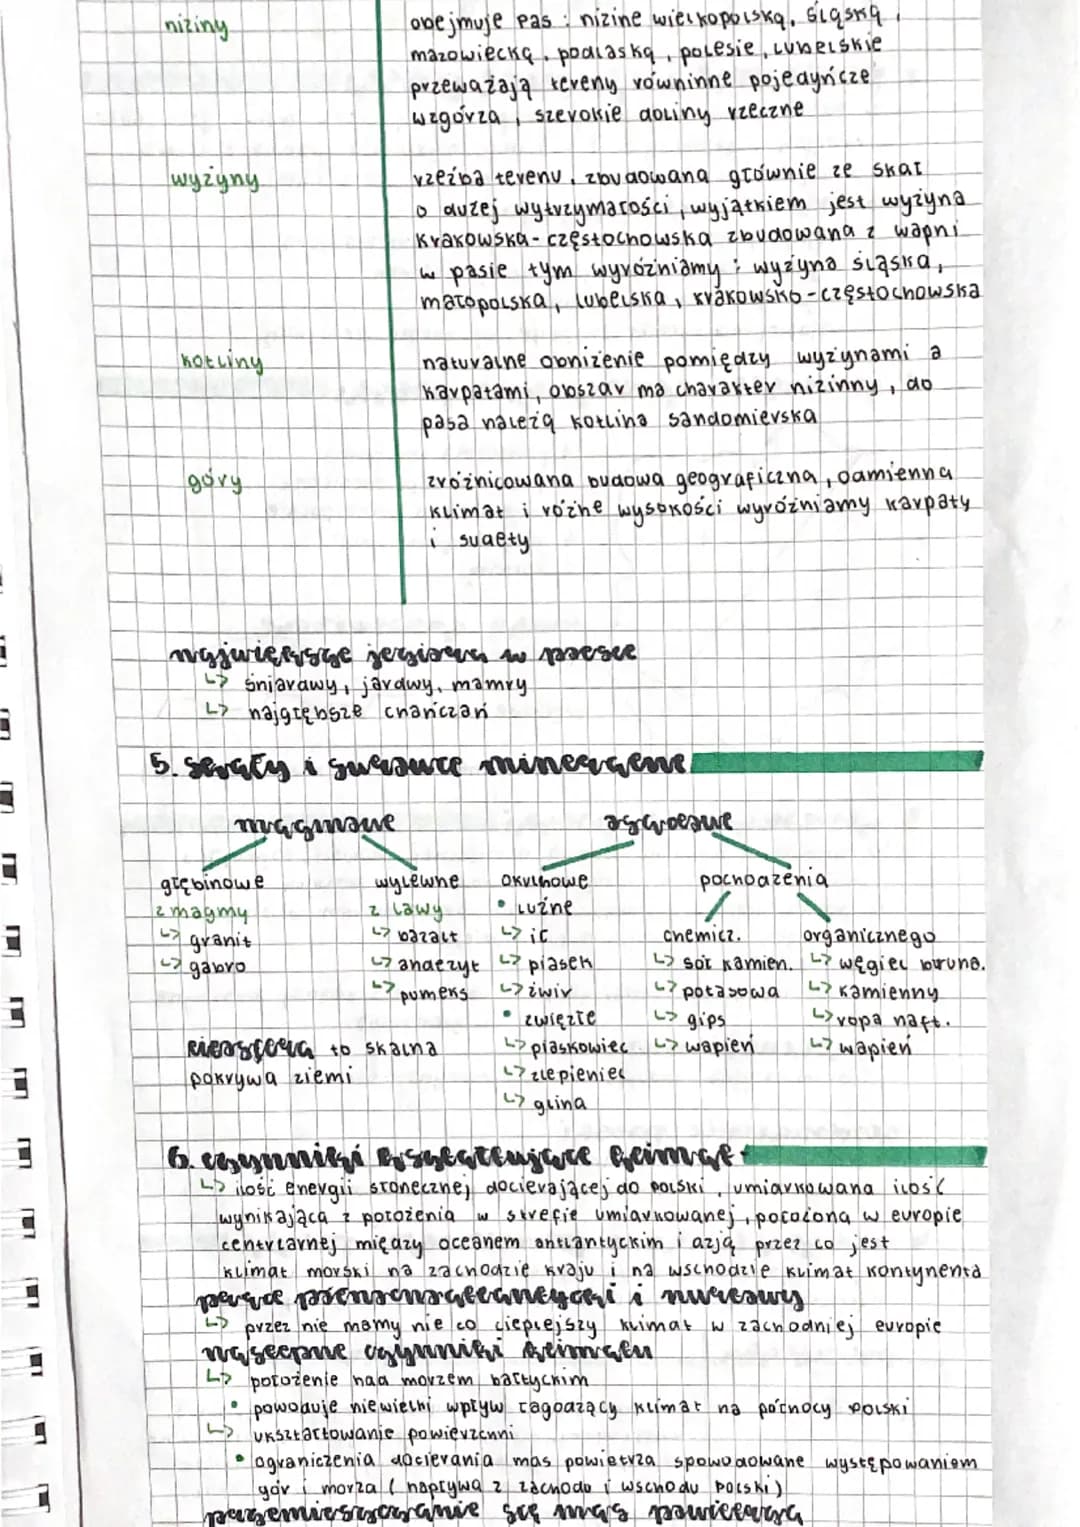 niziny
obejmuje pas : nizine wielkopolską, śląską,
mazowiecką, podlaską, polesie, lubelskie
przeważają tereny równinne pojedyńcze
wzgórza, szerokie doliny rzeczne
wyżyny
rzeźba terenu, zbudowana głównie ze skał
o dużej wytrzymałości, wyjątkiem jest wyżyna
krakowska-częstochowska zbudowana z wapni
w pasie tym wyróżniamy : wyżyna śląska,
małopolska, lubelska, krakowsko-częstochowska
kotliny
naturalne obniżenie pomiędzy wyżynami a
karpatami, obszar ma charakter nizinny, do
pasa należą kotlina sandomierska
góry
zróżnicowana budowa geograficzna, odmienna
klimat i różne wysokości wyróżniamy karpaty
i sudety
największe jeziora w polsce
↳ śniarawy, jardwy, mamry
↳ najgłębsze chańczań
5. skały i surowce mineralne
magmowe
osadowe
głębinowe
z magmy
↳ granit
↳ gabro
wylewne
z lawy
↳ bazalt
↳ andezyt
↳ pumeks
okruchowe
• luźne
↳ ił
↳ piasek
↳ żwir
• zwięzłe
↳ piaskowiec
↳ zlepieniec
↳ glina
pochodzenia
chemicz.
↳ sól kamien.
↳ potasowa
↳ gips
↳ wapień
organicznego
↳ węgiel bruna.
↳ kamienny
↳ ropa naft.
↳ wapień
litosfera to skalna
pokrywa ziemi
6. czynniki kształtujące klimat
↳ ilość energii słonecznej docierającej do polski, umiarkowana ilość
wynikająca z położenia w strefie umiarkowanej, położona w europie
centrlarnej między oceanem antlantyckim i azją przez co jest
klimat morski na zachodzie kraju i na wschodzie klimat kontynenta
prądy północnoatlantycki i
↳ przez nie mamy nie co cieplejszy klimat w zachodniej europie
czynniki klimatu
↳ położenie nad morzem bałtyckim
• powoduje niewielki wpływ łagodzący klimat na północy polski
↳ ukształtowanie powierzchni
• ograniczenia docierania mas powietrza spowodowane występowaniem
gór i morza ( napływa z zachodu i wschodu polski )
przemieszczanie się mas powietrza